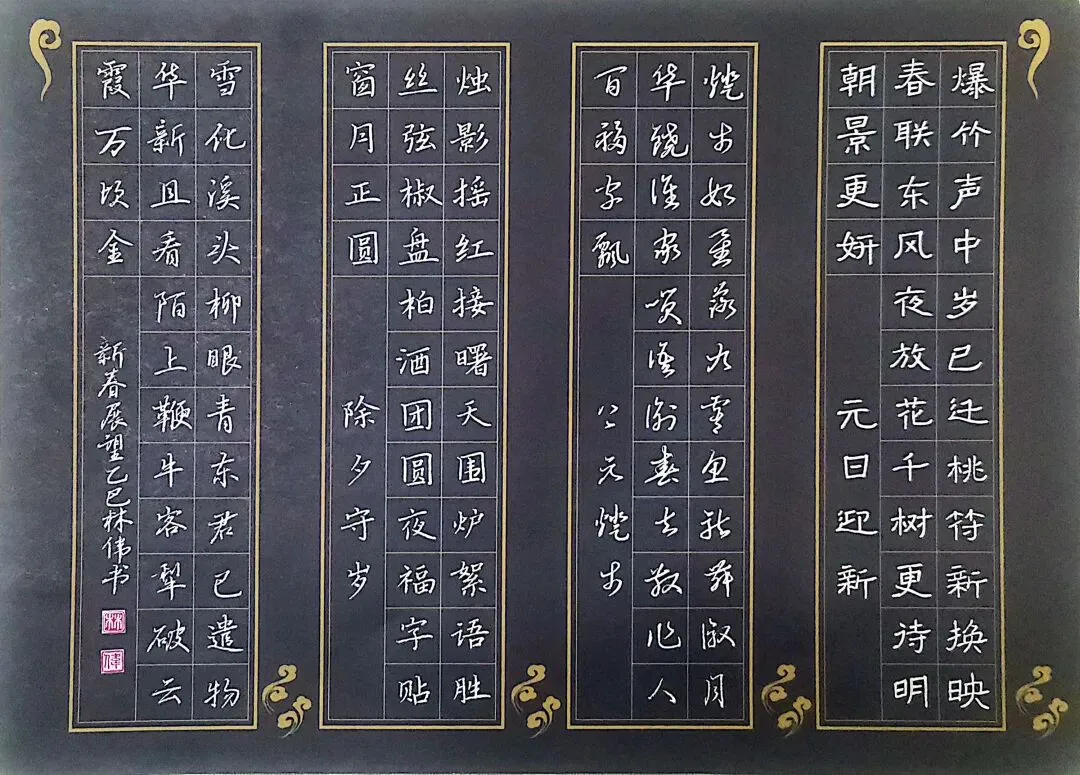 爆竹声中岁已迁桃符新换映
春联东风夜放花千树更待明
朝景更妍
元日迎新
燈市如星落九霄鱼龙舞溆月
华绕谁家笑语衔春去散作人
百福字飘
上元燈市
烛影摇红接曙天围炉絮语胜
丝弦椒盘柏酒团圆夜福字贴
窗月正圆
除夕守岁
雪化溪头柳眼青东君已遣物
华新且看陌上鞭牛客犁破云
霞万顷金
新春展望乙巳林伟书
林
伟